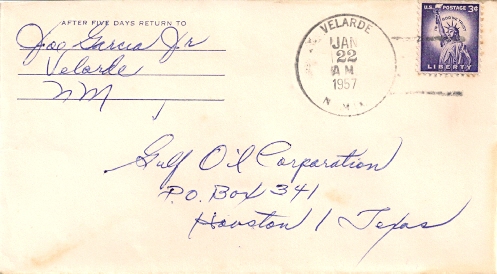 AFTER FIVE DAYS RETURN TO
Joe Garcia Jr
Velarde
NM
VELARDE
JAN
22
A M
1957
N. M.
U.S. POSTAGE 3¢
IN GOD WE TRUST
LIBERTY
Gulf Oil Corporation
P.O. Box 341
Houston 1 Texas